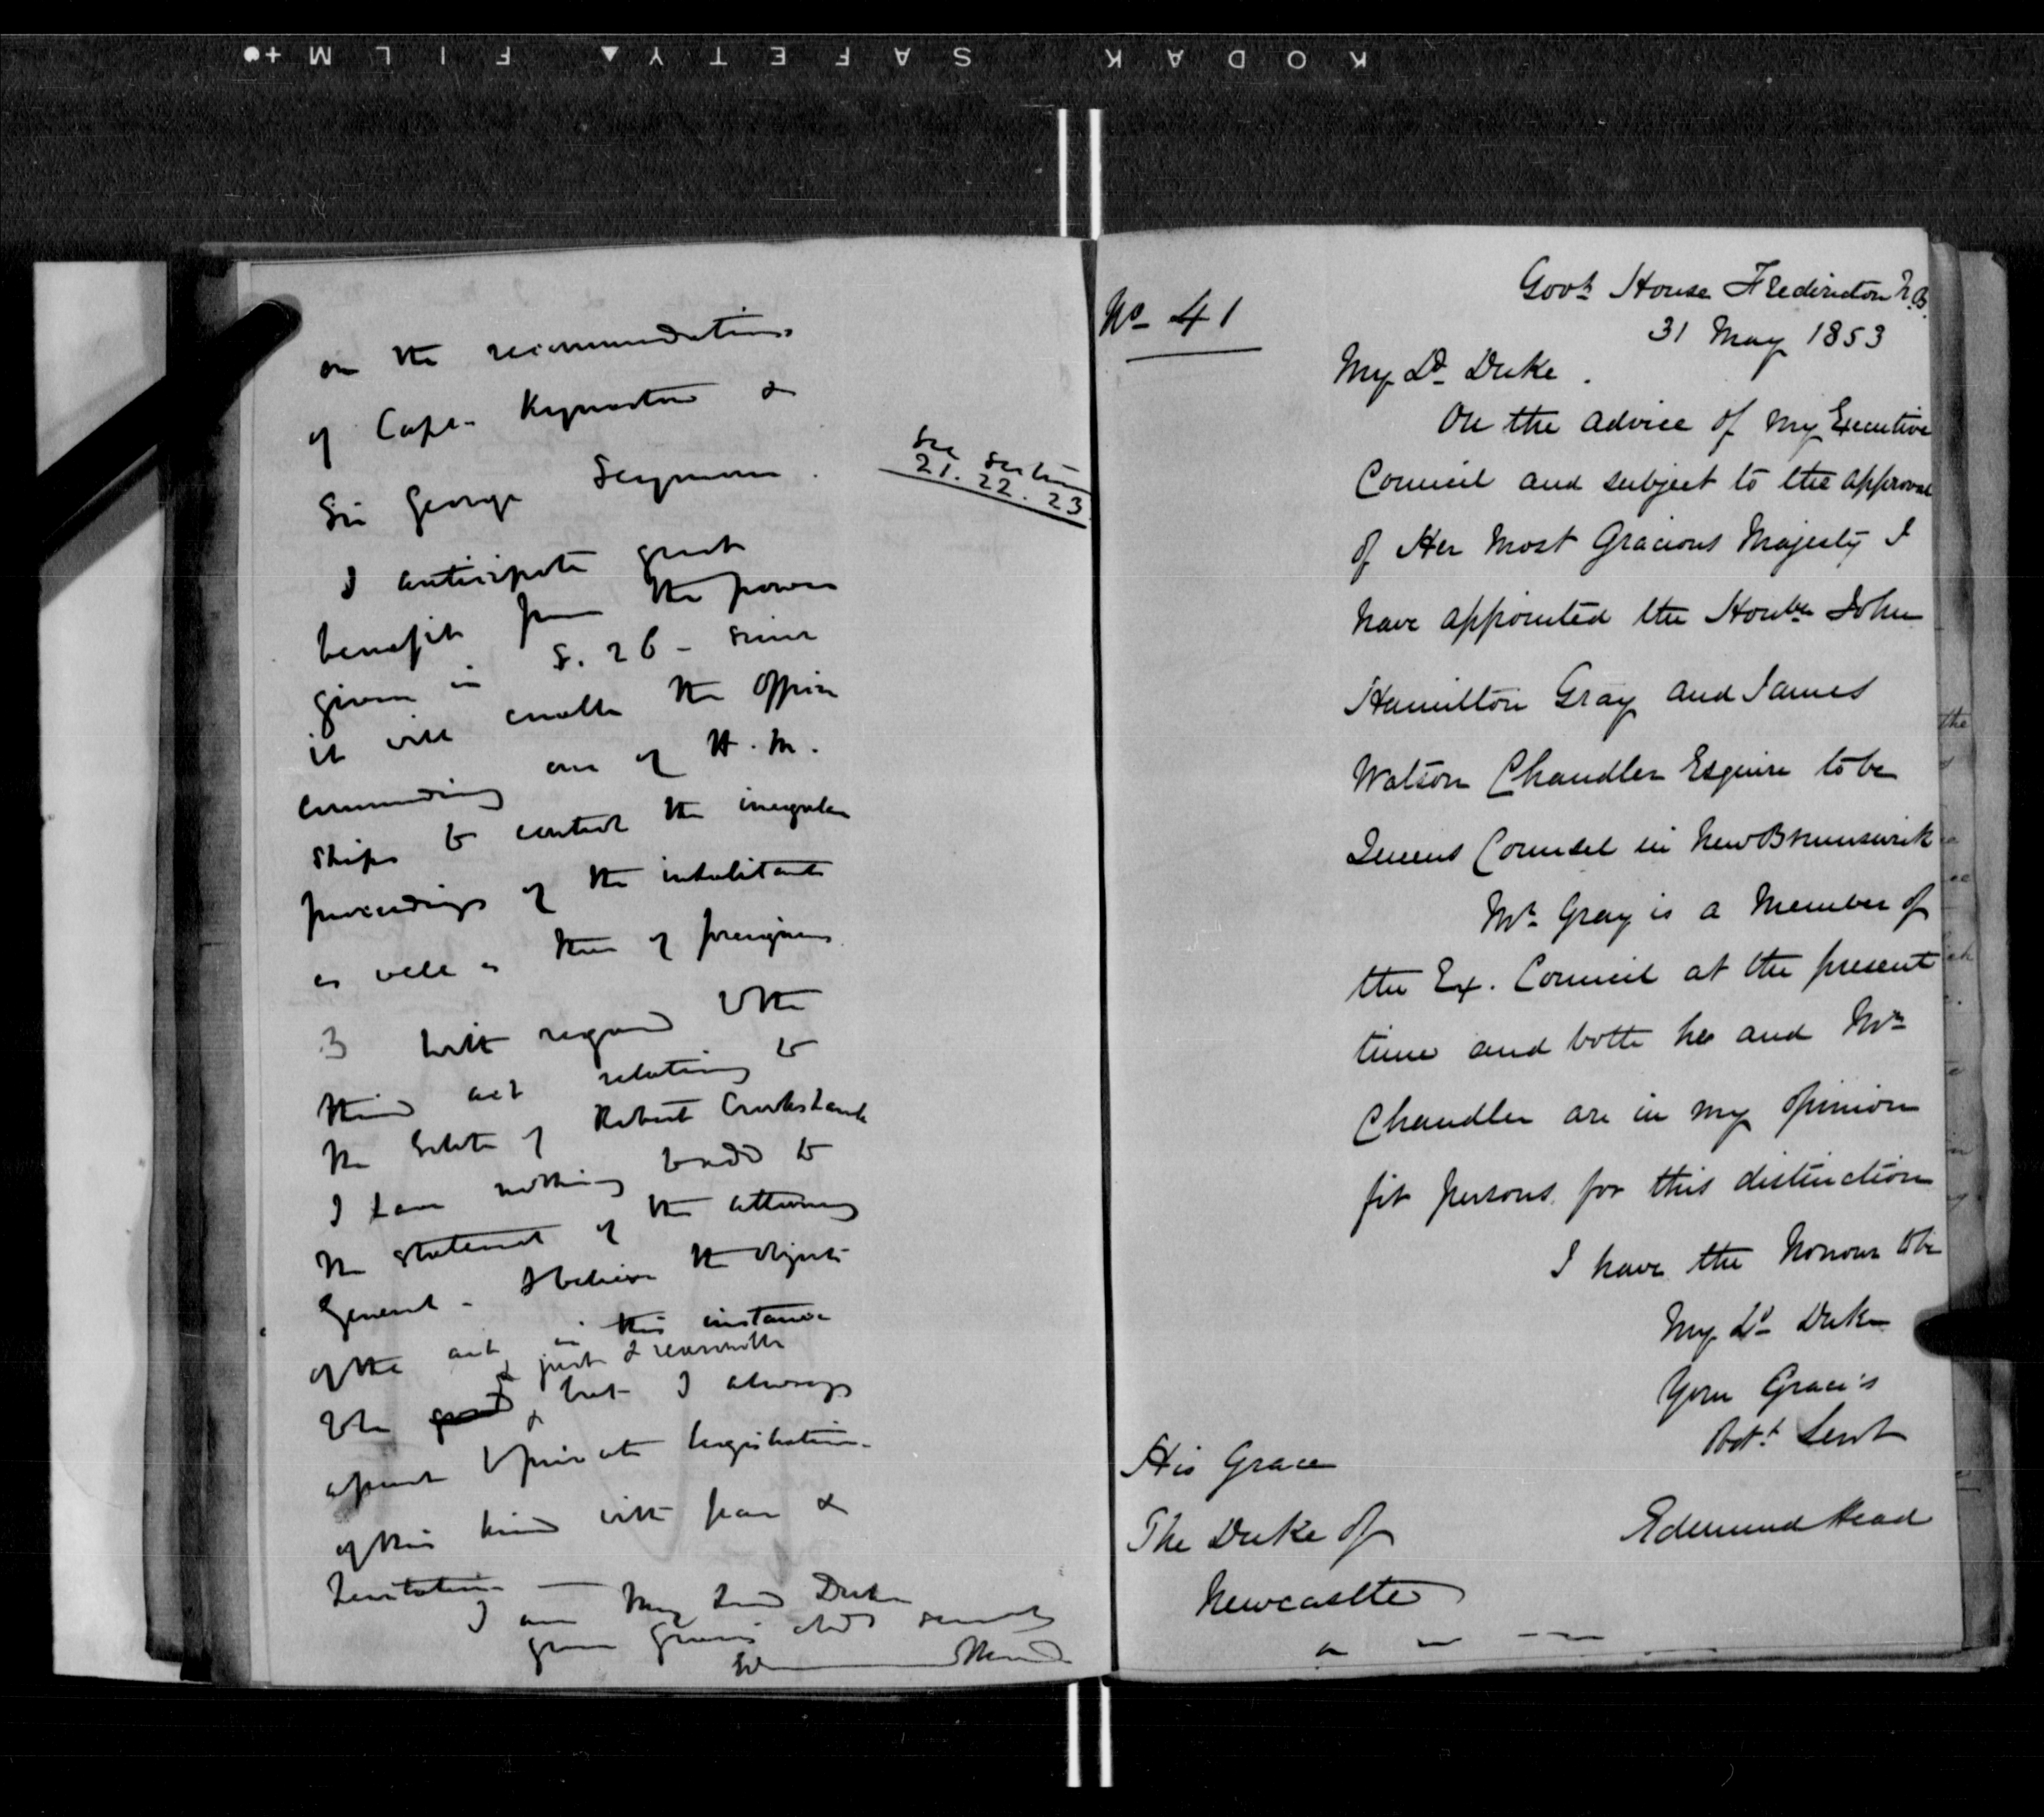 KODAK SAFETY FILM
on the recommendations
of Capt. Kynaston &
Sir George Seymour.
See sections
21. 22. 23
I anticipate great
benefit from the power
given in S. 26 - since
it will enable the officer
commanding one of H. M.
Ships to control the irregular
proceedings of the inhabitants
as well as those of foreigners
3 With regard to the
third act relating to
the Estate of Robert Crookshank
I have nothing to add to
the statement of the Attorney
General - I believe the objects
of the act in this instance
& just & reasonable
to be good, but I always
to private legislation
of this kind with fear &
hesitation -
I am My Lord Duke
your Grace's obdt servant
Edmund Head
No 41
Govt House Fredericton N.B.
31 May 1853
My Ld Duke.
On the advice of my Executive
Council and subject to the approval
of Her Most Gracious Majesty I
have appointed the Honble John
Hamilton Gray and James
Watson Chandler Esquire to be
Queens Counsel in New Brunswick
Mr Gray is a Member of
the Ex. Council at the present
time and both he and Mr
Chandler are in my opinion
fit persons for this distinction
I have the honour to be
My Ld Duke
Your Grace's
Obdt Servt
Edmund Head
His Grace
The Duke of
Newcastle